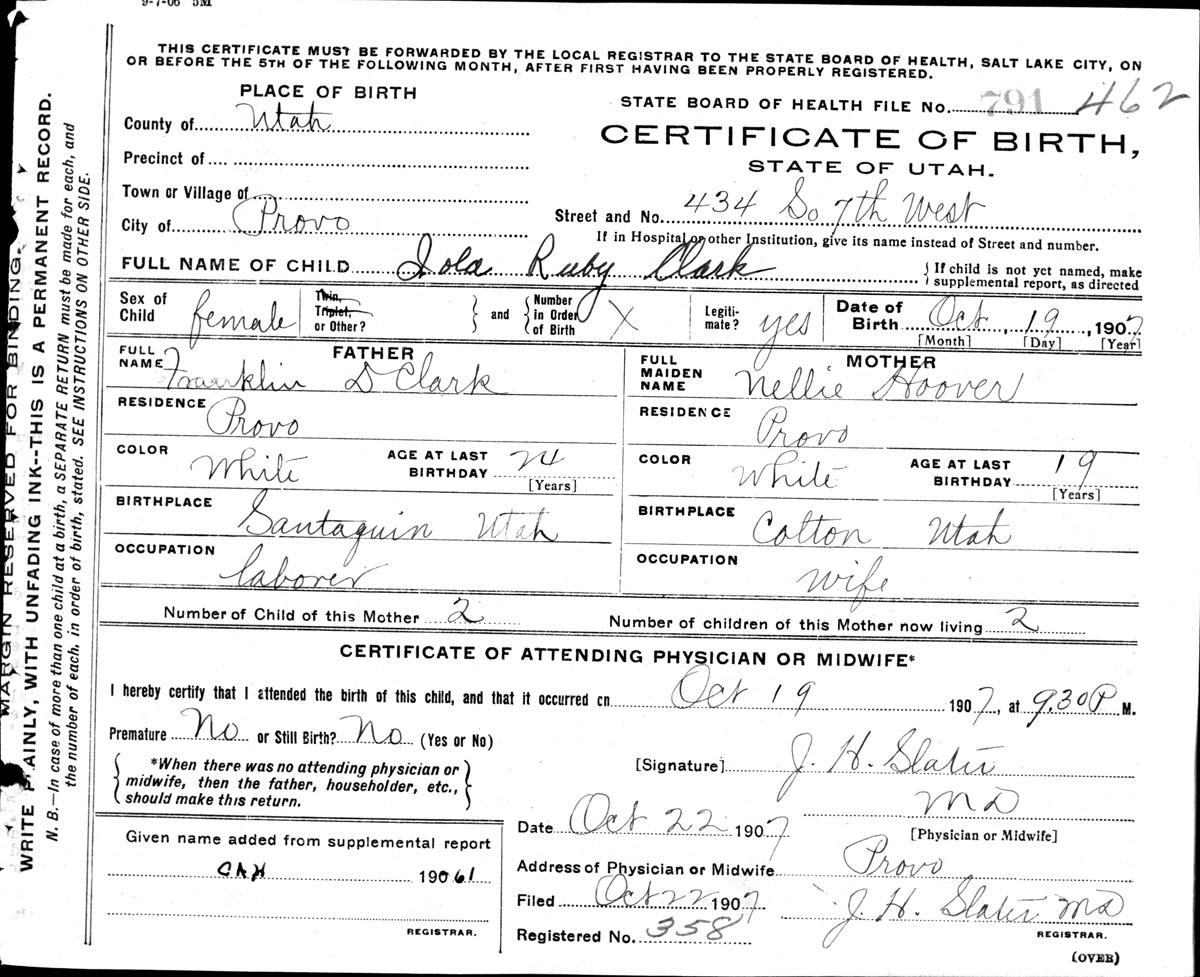 9-7-06 5M
THIS CERTIFICATE MUST BE FORWARDED BY THE LOCAL REGISTRAR TO THE STATE BOARD OF HEALTH, SALT LAKE CITY, ON
OR BEFORE THE 5TH OF THE FOLLOWING MONTH, AFTER FIRST HAVING BEEN PROPERLY REGISTERED.
PLACE OF BIRTH
STATE BOARD OF HEALTH FILE No. 791 462
County of Utah
CERTIFICATE OF BIRTH,
STATE OF UTAH.
Precinct of
Town or Village of
City of Provo
Street and No. 434 So 7th West
If in Hospital or other Institution, give its name instead of Street and number.
FULL NAME OF CHILD Iola Ruby Clark
{ If child is not yet named, make
supplemental report, as directed
Sex of Child female
Twin, Triplet, or Other?
} and { Number in Order of Birth X
Legitimate? yes
Date of Birth Oct, 19, 1907
[Month] [Day] [Year]
FATHER
FULL NAME Franklin D Clark
RESIDENCE Provo
COLOR White
AGE AT LAST BIRTHDAY 24
[Years]
BIRTHPLACE Santaquin Utah
OCCUPATION laborer
MOTHER
FULL MAIDEN NAME Nellie Hoover
RESIDENCE Provo
COLOR White
AGE AT LAST BIRTHDAY 19
[Years]
BIRTHPLACE Colton Utah
OCCUPATION wife
Number of Child of this Mother 2
Number of children of this Mother now living 2
CERTIFICATE OF ATTENDING PHYSICIAN OR MIDWIFE*
I hereby certify that I attended the birth of this child, and that it occurred on Oct 19 1907, at 9.30 P M.
Premature No or Still Birth? No (Yes or No)
{ *When there was no attending physician or
midwife, then the father, householder, etc.,
should make this return. }
[Signature] J. H. Slater
MD
[Physician or Midwife]
Date Oct 22 1907
Address of Physician or Midwife Provo
Filed Oct 22 1907
J. H. Slater MD
REGISTRAR.
Registered No. 358
(OVER)
Given name added from supplemental report
1961
REGISTRAR.
MARGIN RESERVED FOR BINDING.
WRITE PLAINLY, WITH UNFADING INK--THIS IS A PERMANENT RECORD.
N. B.—In case of more than one child at a birth, a SEPARATE RETURN must be made for each, and
the number of each, in order of birth, stated. SEE INSTRUCTIONS ON OTHER SIDE.